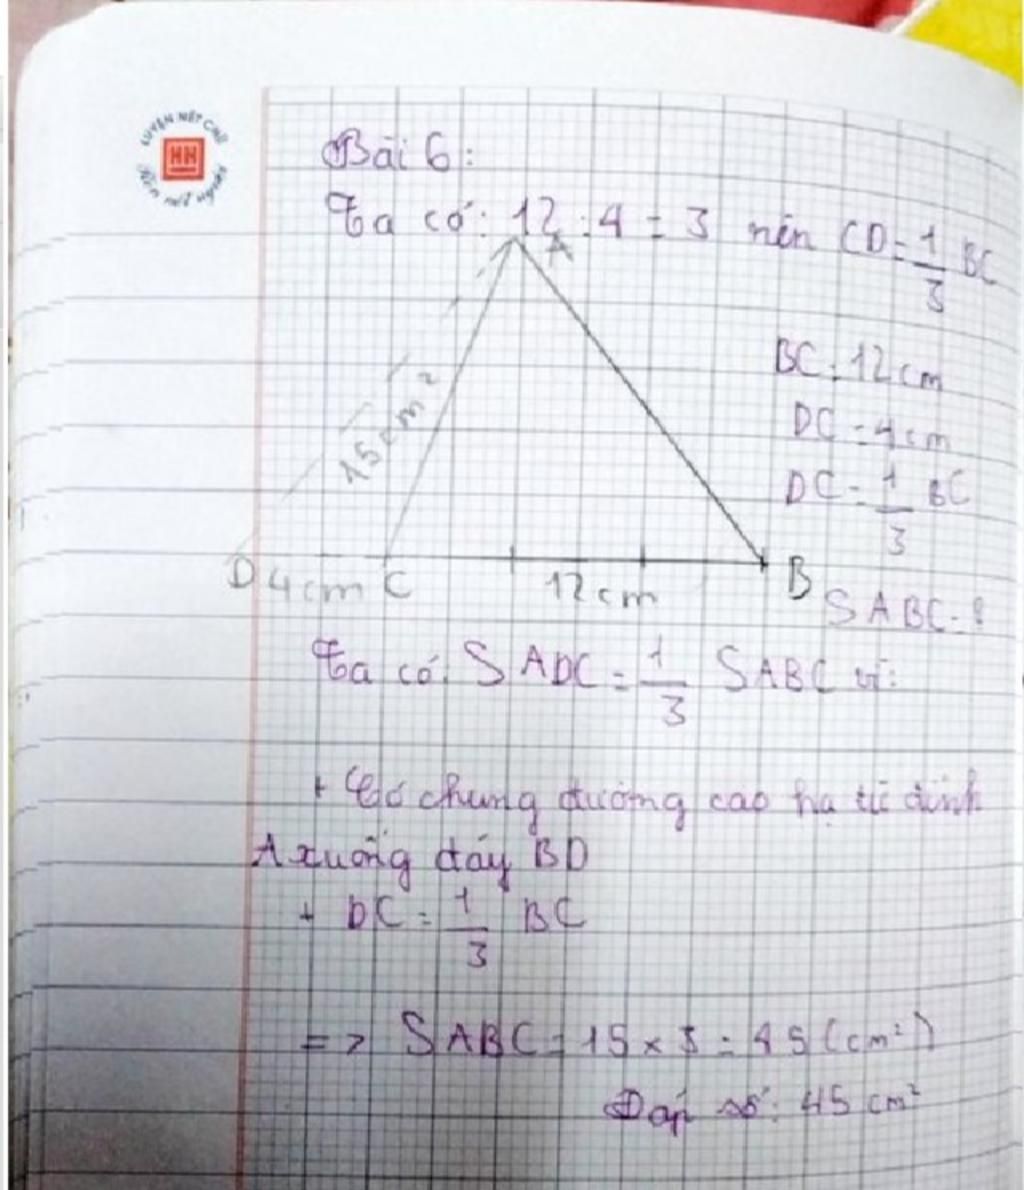 LUYỆN NÉT CHỮ
HH
Rèn nết người
Bài 6:
Ta có: 12 : 4 = 3 nên CD = 1/3 BC
A
BC = 12 cm
15cm²
DC = 4cm
DC = 1/3 BC
D 4cm C 12 cm B
SABC = ?
Ta có: SADC = 1/3 SABC vì:
+ Có chung đường cao hạ từ đỉnh
A xuống đáy BD
+ DC = 1/3 BC
=> SABC = 15 x 3 = 45 (cm²)
Đáp số: 45 cm²